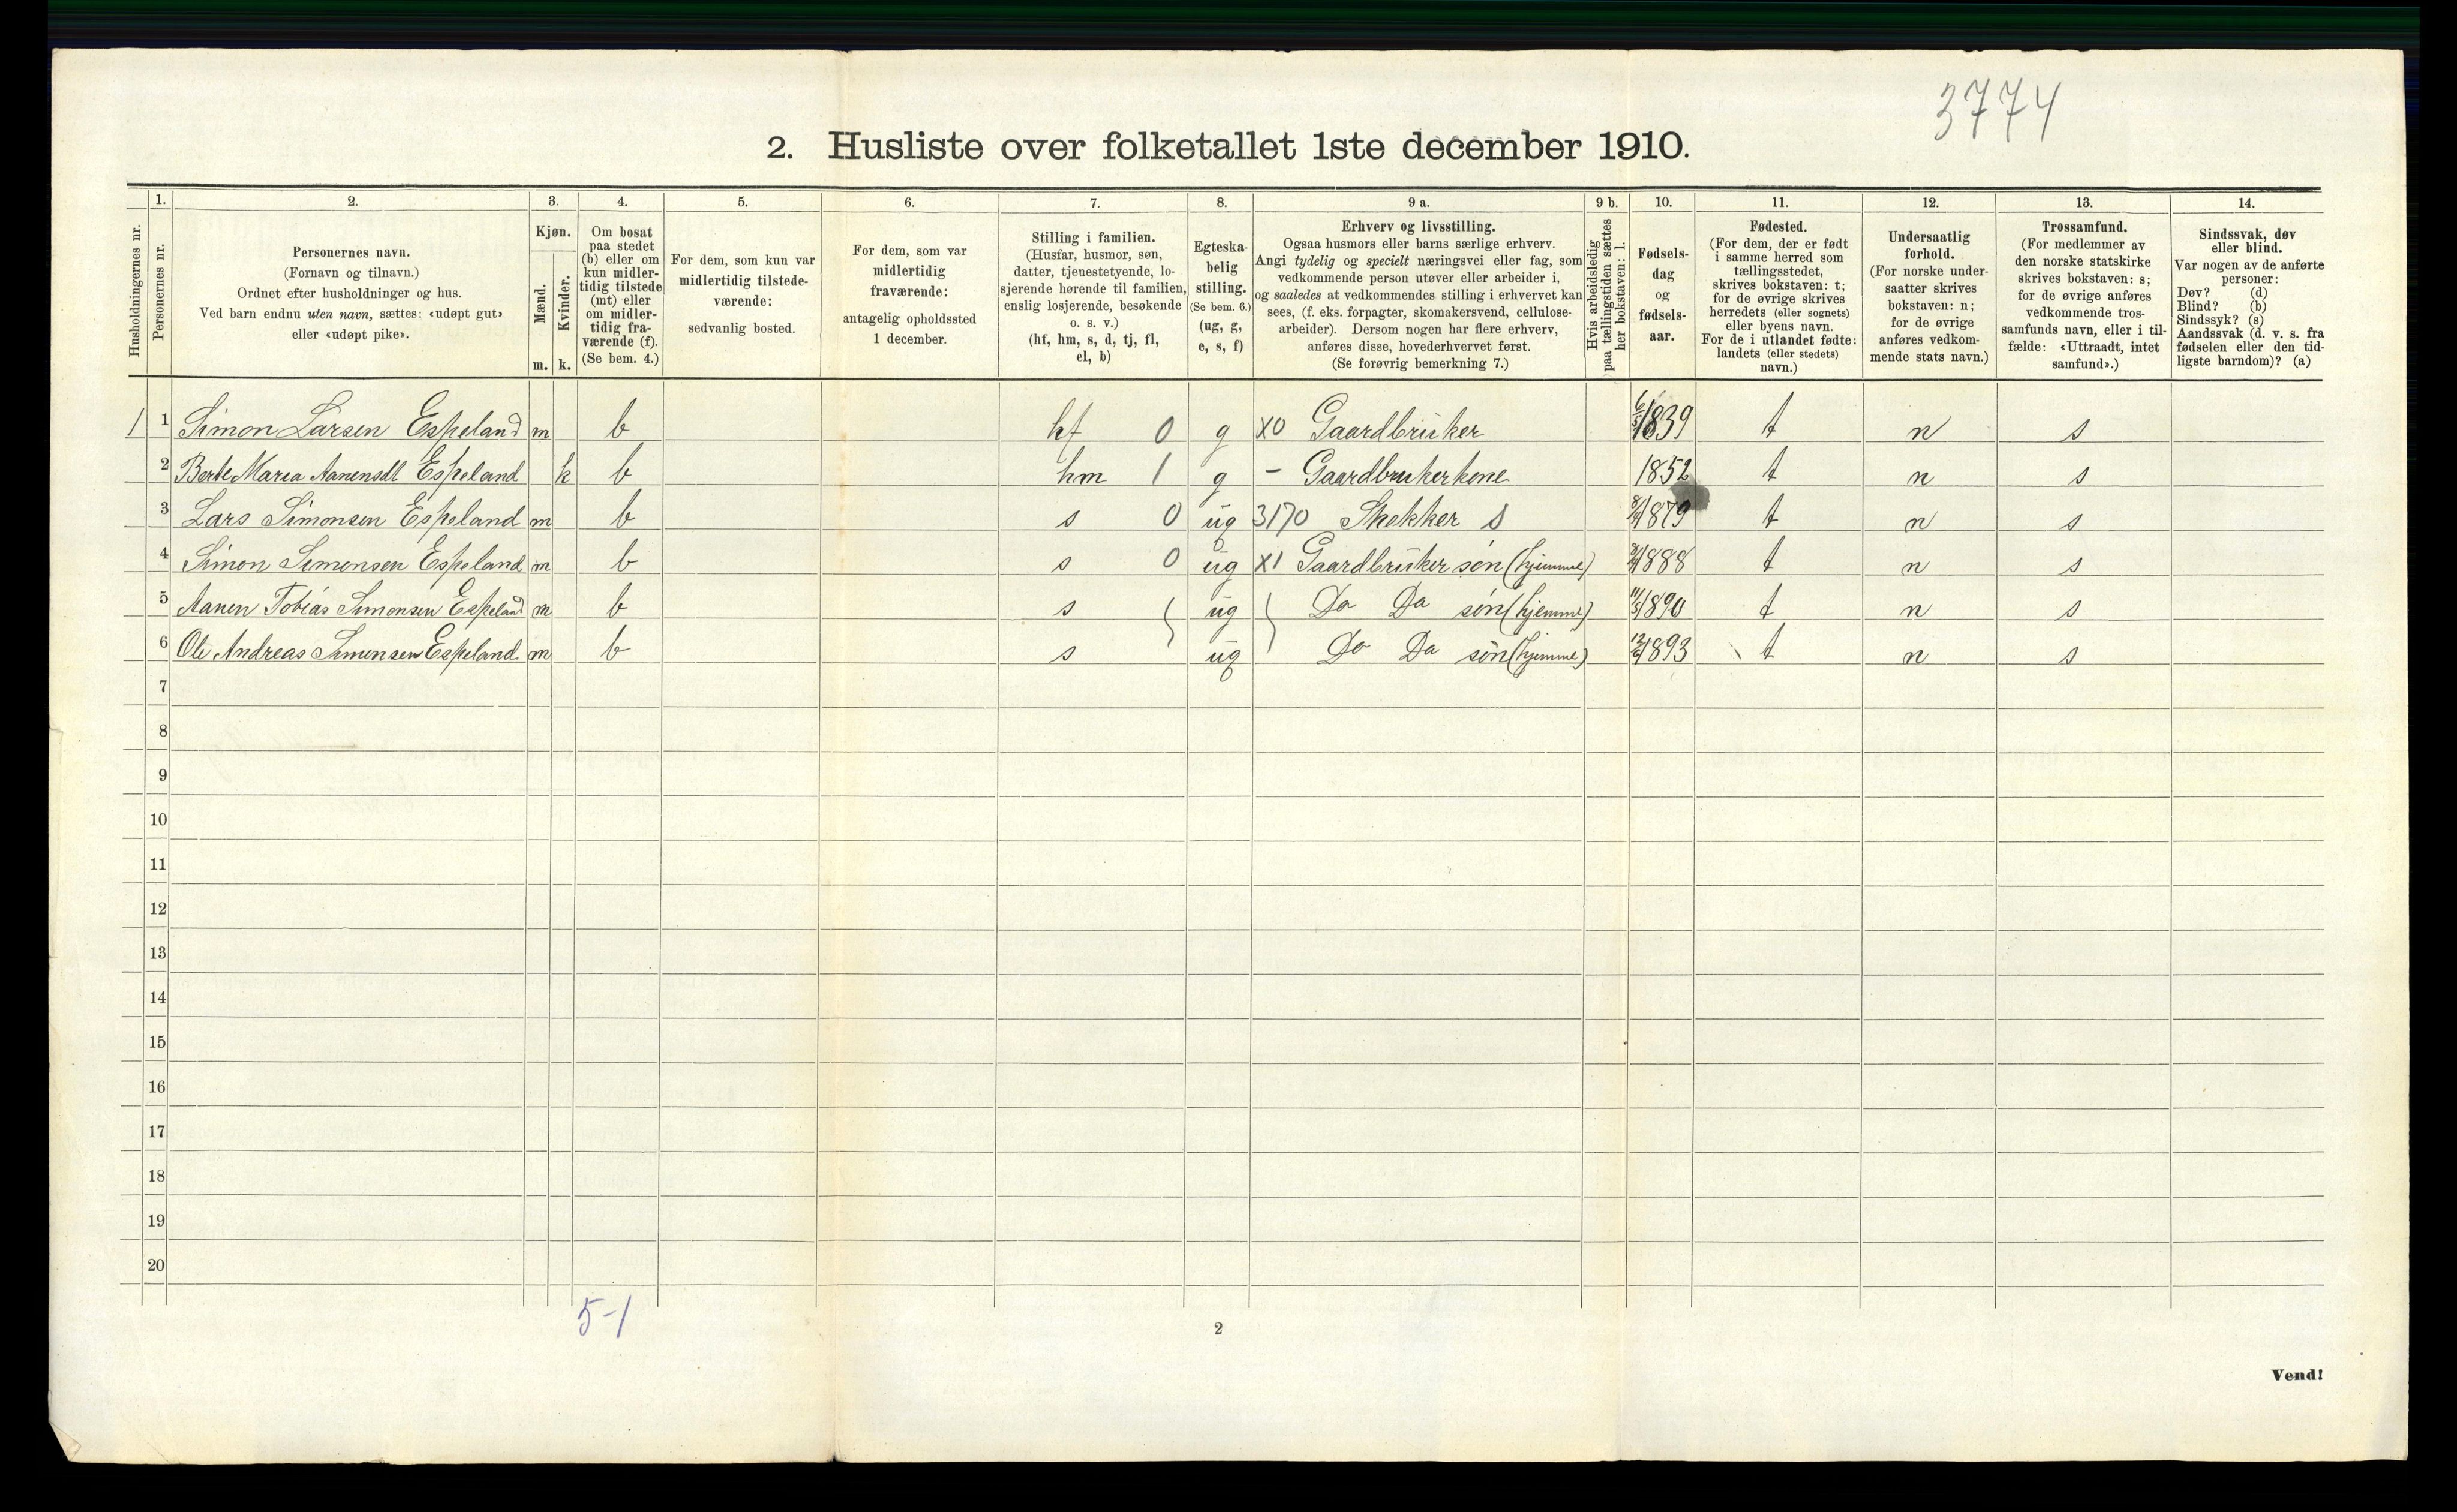 3774
2. Husliste over folketallet 1ste december 1910.
Husholdningernes nr.
1.
Personernes nr.
2.
Personernes navn.
(Fornavn og tilnavn.)
Ordnet efter husholdninger og hus.
Ved barn endnu uten navn, sættes: «udøpt gut»
eller «udøpt pike».
3.
Kjøn.
Mænd.
Kvinder.
m. k.
4.
Om bosat
paa stedet
(b) eller om
kun midler-
tidig tilstede
(mt) eller
om midler-
tidig fra-
værende (f).
(Se bem. 4.)
5.
For dem, som kun var
midlertidig tilstede-
værende:
sedvanlig bosted.
6.
For dem, som var
midlertidig
fraværende:
antagelig opholdssted
1 december.
7.
Stilling i familien.
(Husfar, husmor, søn,
datter, tjenestetyende, lo-
sjerende hørende til familien,
enslig losjerende, besøkende
o. s. v.)
(hf, hm, s, d, tj, fl,
el, b)
8.
Egteska-
belig
stilling.
(Se bem. 6.)
(ug, g,
e, s, f)
9 a.
Erhverv og livsstilling.
Ogsaa husmors eller barns særlige erhverv.
Angi tydelig og specielt næringsvei eller fag, som
vedkommende person utøver eller arbeider i,
og saaledes at vedkommendes stilling i erhvervet kan
sees, (f. eks. forpagter, skomakersvend, cellulose-
arbeider). Dersom nogen har flere erhverv,
anføres disse, hovederhvervet først.
(Se forøvrig bemerkning 7.)
9 b.
Hvis arbeidsledig
paa tællingstiden sættes
her bokstaven: l.
10.
Fødsels-
dag
og
fødsels-
aar.
11.
Fødested.
(For dem, der er født
i samme herred som
tællingsstedet,
skrives bokstaven: t;
for de øvrige skrives
herredets (eller sognets)
eller byens navn.
For de i utlandet fødte:
landets (eller stedets)
navn.)
12.
Undersaatlig
forhold.
(For norske under-
saatter skrives
bokstaven: n;
for de øvrige
anføres vedkom-
mende stats navn.)
13.
Trossamfund.
(For medlemmer av
den norske statskirke
skrives bokstaven: s;
for de øvrige anføres
vedkommende tros-
samfunds navn, eller i til-
fælde: «Uttraadt, intet
samfund».)
14.
Sindssvak, døv
eller blind.
Var nogen av de anførte
personer:
Døv? (d)
Blind? (b)
Sindssyk? (s)
Aandssvak (d. v. s. fra
fødselen eller den tid-
ligste barndom)? (a)
1 1 Simon Larsen Espeland m b hf 0 g X0 Gaardbruker 1839 t n s
2 Berte Maria Aanensdt Espeland k b hm 1 g - Gaardbrukerkone 1852 t n s
3 Lars Simonsen Espeland m b s 0 ug 3170 Snekker s 1879 t n s
4 Simon Simonsen Espeland m b s 0 ug X1 Gaardbruker søn (hjemme) 1888 t n s
5 Aanen Tobias Simonsen Espeland m b s ug Do Do søn (hjemme) 11/5 1890 t n s
6 Ole Andreas Simonsen Espeland m b s ug Do Do søn (hjemme) 1893 t n s
7
8
9
10
11
12
13
14
15
16
17
18
19
20
5-1
2
Vend!